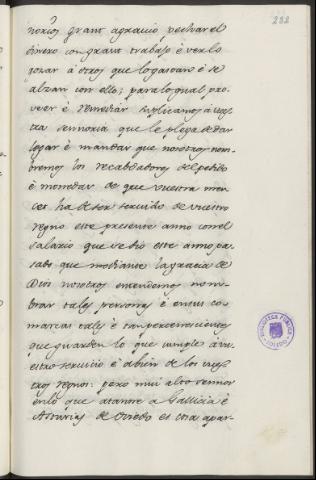 282
nosotros grant agravio pechar el
dinero con grant trabajo é verlo
gozar á otros que lo gastan é se
alzan con ello; para lo qual pro-
veer é remediar suplicamos á vues-
tra sennoria que le plega de dar
logar é mandar que nosotros nom-
bremos los recabdadores del pedido
é monedas de que vuestra mer-
ced ha de ser servido de vuestro
regno este presente anno con el
salario que se dio este anno pa-
sado que mediante la gracia de
Dios nosotros entendemos nom-
brar tales personas é en sus co-
marcas tales é tan pertenescientes
que guarden lo que cumple á vu-
estro servicio é á bien de los vues-
tros regnos: pero mui alto sennor
en lo que atanne a Gallicia é
Asturias de Oviedo es cosa apar-
BIBLIOTECA PUBLICA
TOLEDO